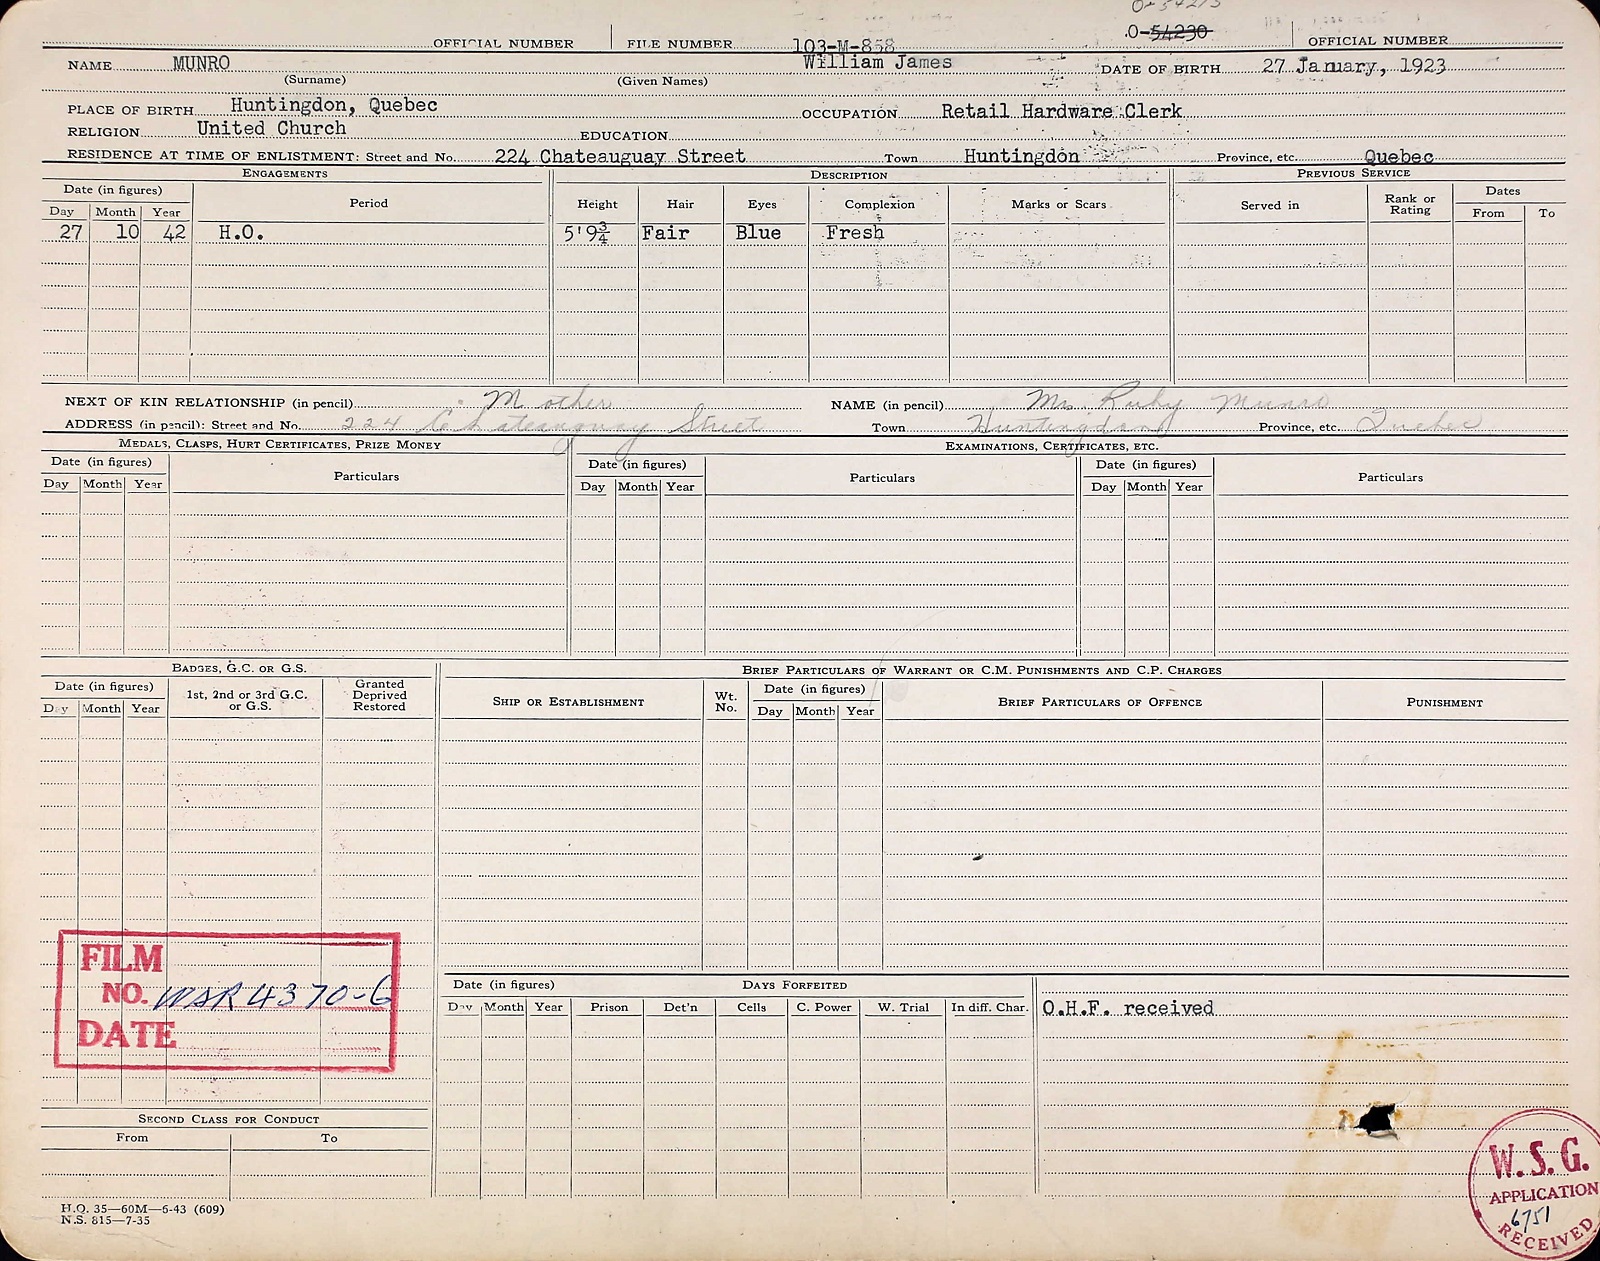 O-54230
OFFICIAL NUMBER FILE NUMBER 103-M-858 OFFICIAL NUMBER
NAME MUNRO William James DATE OF BIRTH 27 January, 1923
(Surname) (Given Names)
PLACE OF BIRTH Huntingdon, Quebec OCCUPATION Retail Hardware Clerk
RELIGION United Church EDUCATION
RESIDENCE AT TIME OF ENLISTMENT: Street and No. 224 Chateauguay Street Town Huntingdon Province, etc. Quebec
ENGAGEMENTS DESCRIPTION PREVIOUS SERVICE
Date (in figures) Period Height Hair Eyes Complexion Marks or Scars Served in Rank or Rating Dates
Day Month Year From To
27 10 42 H.O. 5'9¾ Fair Blue Fresh
NEXT OF KIN RELATIONSHIP (in pencil) Mother NAME (in pencil) Mrs. Ruby Munro
ADDRESS (in pencil): Street and No. 224 Chateauguay Street Town Huntingdon Province, etc. Quebec
MEDALS, CLASPS, HURT CERTIFICATES, PRIZE MONEY EXAMINATIONS, CERTIFICATES, ETC.
Date (in figures) Particulars Date (in figures) Particulars Date (in figures) Particulars
Day Month Year Day Month Year Day Month Year
BADGES, G.C. OR G.S. BRIEF PARTICULARS OF WARRANT OR C.M. PUNISHMENTS AND C.P. CHARGES
Date (in figures) 1st, 2nd or 3rd G.C. or G.S. Granted Deprived Restored SHIP OR ESTABLISHMENT Wt. No. Date (in figures) BRIEF PARTICULARS OF OFFENCE PUNISHMENT
Day Month Year Day Month Year
FILM
NO. WSR 4370-6
DATE
Date (in figures) DAYS FORFEITED
Day Month Year Prison Det'n Cells C. Power W. Trial In diff. Char.
O.H.F. received
SECOND CLASS FOR CONDUCT
From To
W.S.G.
APPLICATION
6751
RECEIVED
H.Q. 35—60M—6-43 (609)
N.S. 815—7-35